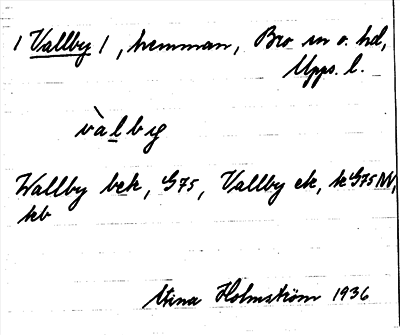 / Vallby /, hemman, Bro sn o. hd,
Upps. l.
vàlby
Wallby bek, G75, Vallby ek, k G75 NV,
kb
Stina Holmström 1936